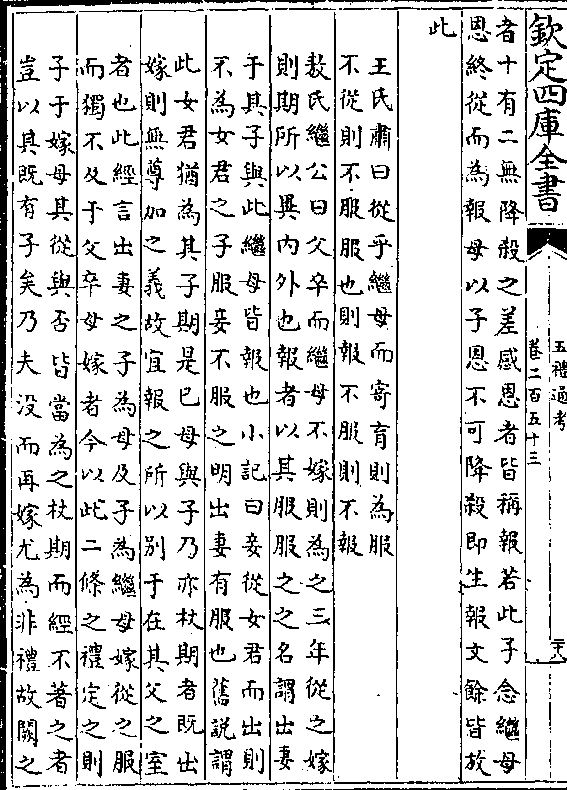 欽定四庫全書
五禮通考
卷二百五十三
二十八
者十有二無降殺之差感恩者皆稱報若此子念繼母
恩終從而為報母以子恩不可降殺即生報文餘皆放
此
王氏肅曰從乎繼母而寄育則為服
不從則不服服也則報不服則不報
敖氏繼公曰父卒而繼母不嫁則為之三年從之嫁
則期所以異內外也報者以其服服之之名謂出妻
于其子與此繼母皆報也小記曰妾從女君而出則
不為女君之子服妾不服之明出妻有服也舊說謂
此女君猶為其子期是已母與子乃亦杖期者既出
嫁則無尊加之義故宜報之所以別于在其父之室
者也此經言出妻之子為母及子為繼母嫁從之服
而獨不及于父卒母嫁者今以此二條之禮定之則
子于嫁母其從與否皆當為之杖期而經不著之者
豈以其既有子矣乃夫没而再嫁尤為非禮故闕之